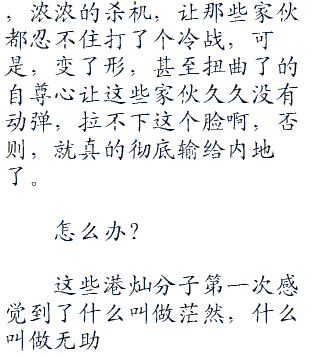 ，浓浓的杀机，让那些家伙
都忍不住打了个冷战，可
是，变了形，甚至扭曲了的
自尊心让这些家伙久久没有
动弹，拉不下这个脸啊，否
则，就真的彻底输给内地
了。
怎么办？
这些港灿分子第一次感
觉到了什么叫做茫然，什么
叫做无助